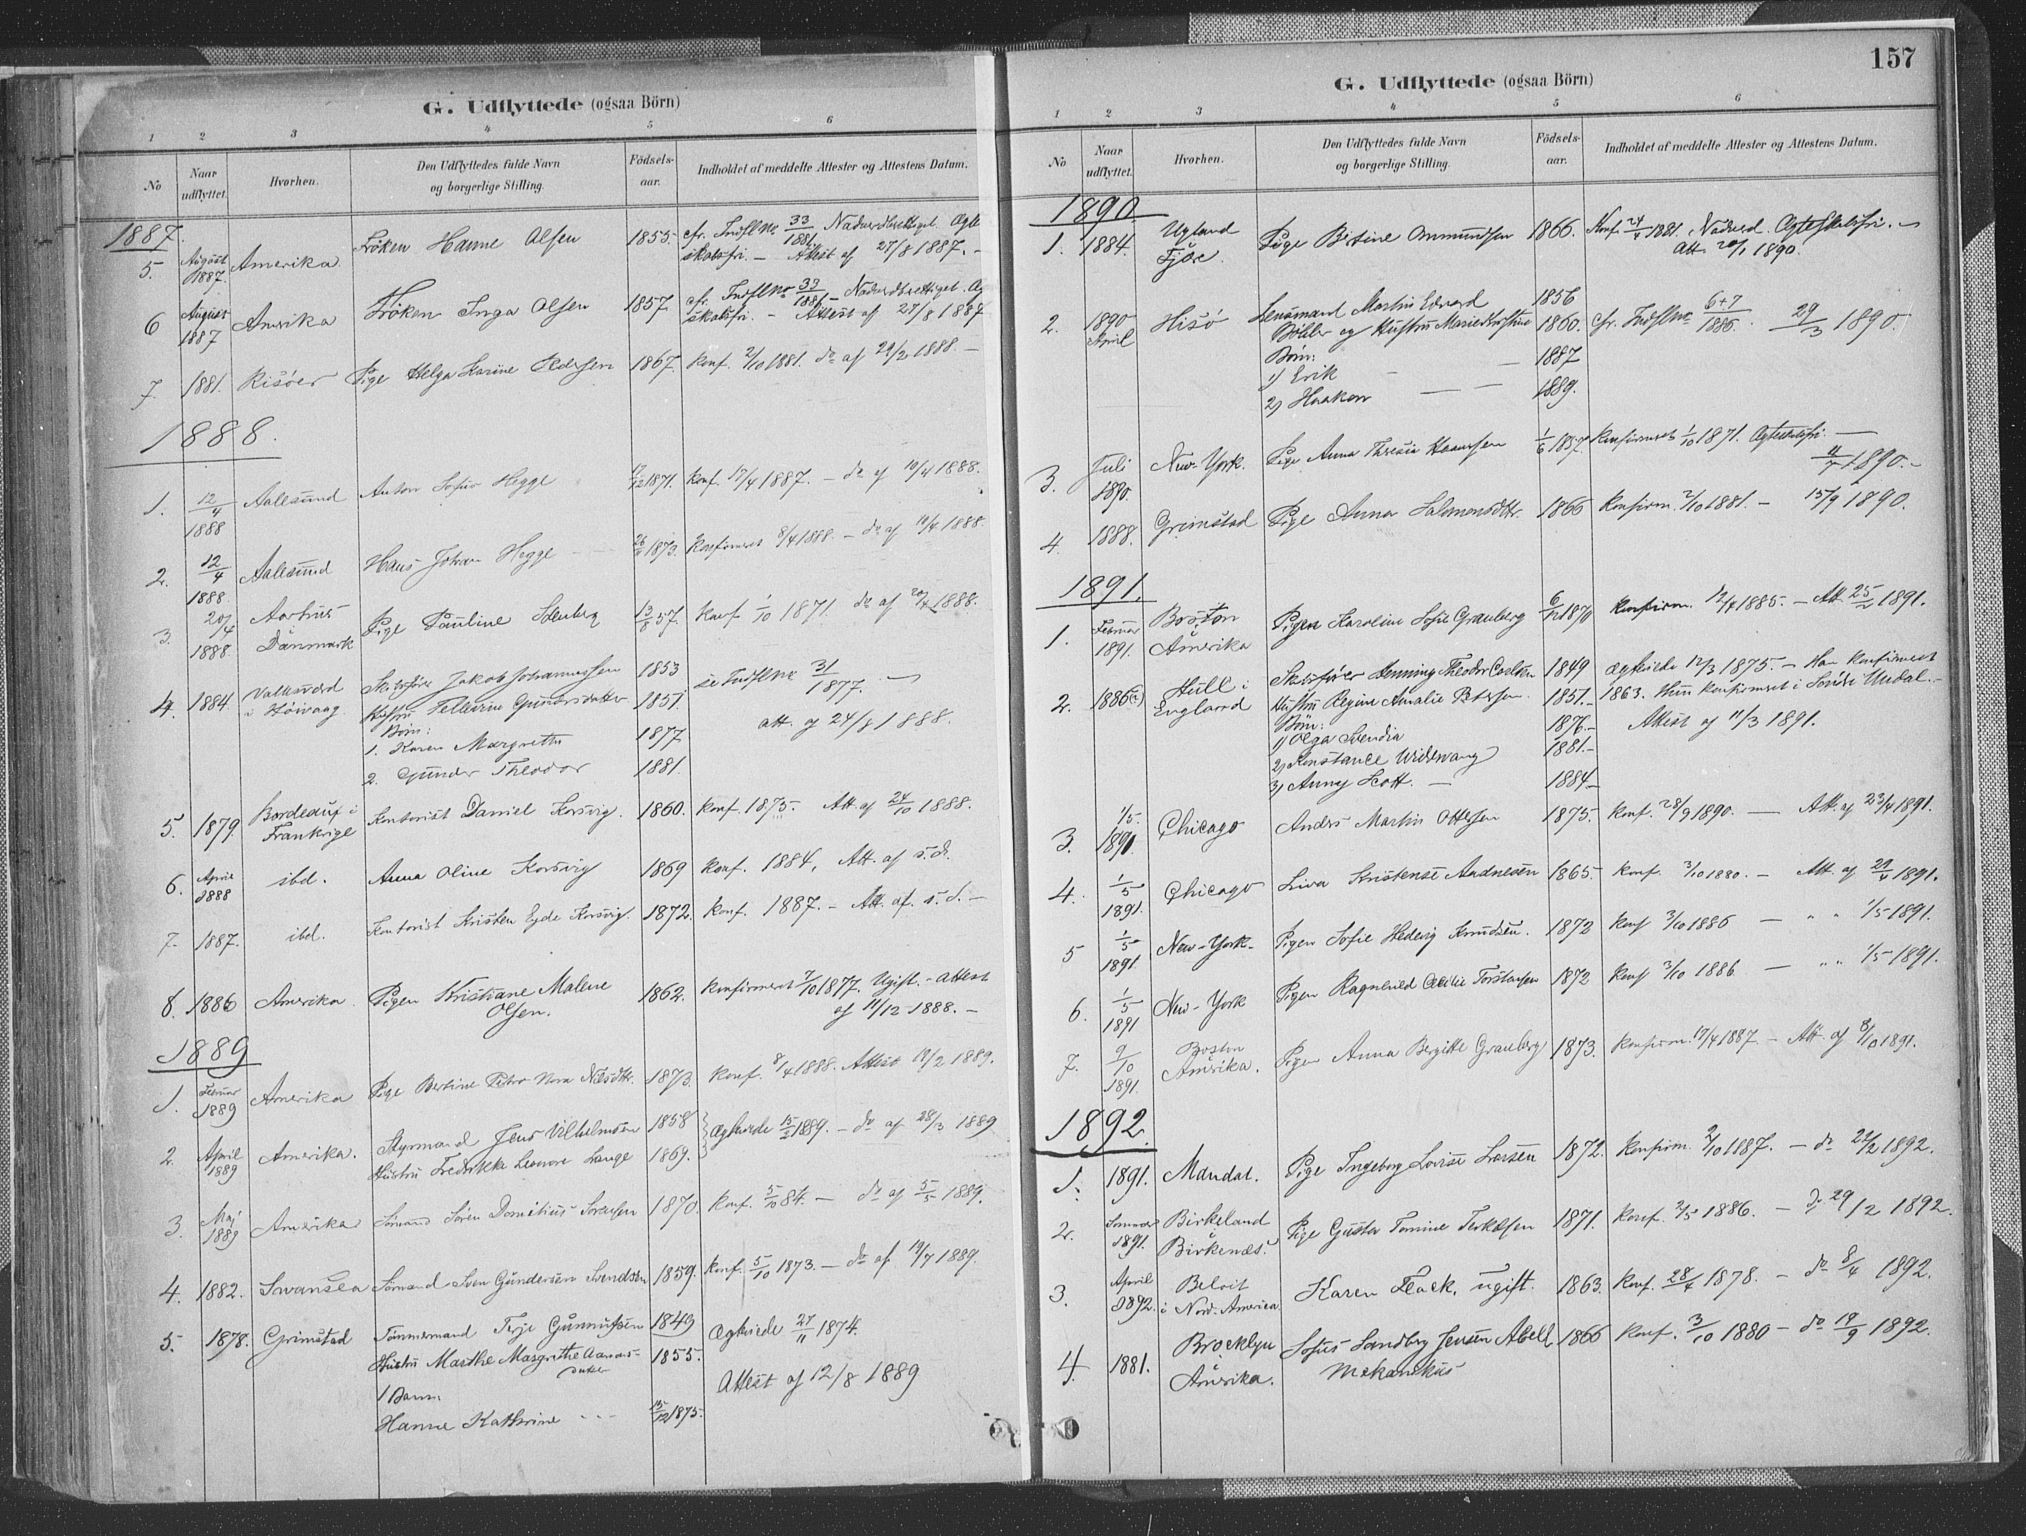 G. Udflyttede (ogsaa Börn)
1 2 3 4 5 6
No Naar udflyttet. Hvorhen. Den Udflyttedes fulde Navn og borgerlige Stilling. Fødsels-aar. Indholdet af meddelte Attester og Attestens Datum.
1887.
5. August 1887. Amerika. Frøken Hanne Olsen 1855. cfr. Indfl. No 33/1881. Nadverdberettiget. Ægte
skabsfri. — Attest af 27/8 1887. —
6 August 1887 Amerika Frøken Inga Olsen 1857. cfr. Indfl No 33/1881 — Nadverdberettiget. Æg
skabsfri. — Attest af 27/8 1887
7 1881. Risöer Pige Helga Karine Pedersen 1867. Konf. 2/10 1881. do af 29/2 1888. —
1888.
1. 12/4 1888 Aalesund Anton Sofus Hegge 1871. Konf. 17/4 1887. — do af 10/4 1888.
2. 12/4 1888. Aalesund Hans Johan Hegge 1873. Konfirmeret 8/4 1888. — do af 10/4 1888.
3. 20/4 1888. Aarhus Danmark Pige Pauline Stenberg 13/8 57. Konf 1/10 1871 do af 20/4 1888.
4. 1884. i Höivaag Skibsfører Jakob Johannessen 1853 se Indfl No 31/1877. —
Hustru Gundersdatter 1851
Børn: att. af 24/8 1888.
1. Karen Margrethe 1877
2. Gunder Theodor 1881.
5. 1879. Bordeaux i Frankrige Kontorist Daniel Korsvig. 1860. Konf. 1875. Att. af 24/10 1888.
6. April 1888 ibd. Anna Oline Korsvig 1869 Konf. 1884. Att. af s. d.
7. 1887. ibd. Kontorist Kristen Eyde Korsvig. 1872. Konf. 1887. — Att. af s. d. —
8. 1886 Amerika. Pigen Kristiane Malene Olsen. 1862. Konfirmeret 7/10 1877. Ugift. — Attest
af 11/12 1888. —
1889
1. Februar 1889 Amerika Pige Bertine Petra Nora 1873. Konf. 8/4 1888. Attest 19/2 1889.
2. April 1889 Amerika. Styrmand Jens Vilhelmsen 1858 Ægteviede 15/2 1889. — do af 28/3 1889
Hustru Fredrikke Leonore Lange 1869.
3. Maj 1889 Amerika Sømand Søren Domitius Sørensen 1870. Konf. 5/10 84. — do af 5/5 1889.
4. 1882. Swansea Sømand Sven Gundersen Svendsen 1859. Konf. 5/10 1873. — do af 19/7 1889.
5. 1878. Grimstad Tømmermand Terje Gunnufsen 1849 Ægteviede 27/11 1874.
Hustru Marthe Margrethe Aanasdatter 1855. Attest af 12/8 1889
1 Barn:
Hanne Kathrine 15/12 1875.
157
G. Udflyttede (ogsaa Börn)
1 2 3 4 5 6
No Naar udflyttet. Hvorhen. Den Udflyttedes fulde Navn og borgerlige Stilling. Fødsels-aar. Indholdet af meddelte Attester og Attestens Datum.
1890
1. 1884. Ugland Fjære. Pige Birtine Ommundsen 1866. Konf 24/4 1881. Nadverd. Ægteskabsfri. —
Att. 20/1 1890.
2. 1890 April Hisø Lensmand Martin Edvard 1856 cfr. Indfl No 6+7/1886. 29/3 1890.
og Hustru 1860.
Børn:
1) Erik — 1887
2) Haakon — 1889.
3. Juli 1890. New-York. Pige Anna Theresia 1/6 1857. Konfirmeret 1/10 1871. Ægteskabsfri. —
1890. —
4. 1888. Grimstad Pige Anna Salomonsdtr. 1866 Konfirm. 2/10 1881. — 15/9 1890.
1891.
1. Februar 1891. Boston Amerika Pigen Karoline Sofie Granberg 6/12 1870 Konfirm. 12/4 1885. — Att. 25/2 1891.
2. 1886 Hull i England Skibsfører Henning Theodor Carlsen 1849 Ægteviede 12/3 1875. — Han konfirmeret
Hustru Regine Amalie Petersen 1851. 1863. Hun konfirmeret i Søndre Undal. —
Børn: Attest af 11/3 1891.
1) Olga Svendia 1876. —
2) Konstance 1881. —
3) Anny Scott. — 1884 —
3. 1/5 1891. Chicago Anders Martin Ottersen 1875. Konf. 28/9 1890. — Att. af 23/4 1891.
4. 1/5 1891. Chicago Lina Kristense Andresen 1865. Konf. 3/10 1880. — Att. af 29/4 1891.
5 1/5 1891. New-York. Pigen Sofie Hedvig Knudsen. 1872 Konf 3/10 1886 — „ „ 1/5 1891.
6. 1/5 1891 New-York Pigen Ragnhild Cecilie Torstensen 1872 Konf 3/10 1886 — „ „ 1/5 1891.
7. 9/10 1891. Boston Amerika. Pigen Anna Bergitte Granberg 1873. Konfirm. 17/4 1887 — Att. af 8/10 1891.
1892.
1. 1891. Mandal. Pige Ingeborg Lovise Larsen 1872. Konfirm. 2/10 1887. — do 22/2 1892.
2. 1891. Birkeland Birkenæs. Pige Gusta Tomine Terkelsen 1871. Konf. 1886. — do 29/2 1892.
3. April 1892. Beloit i Nord. America Karen Flack, ugift. 1863. Konf. 28/4 1878. — do 8/4 1892.
4. 1881. Brooklyn Amerika. Sofus Sandberg Jensen Abell 1866 Konf. 3/10 1880 — do 19/9 1892.
Mekanikus